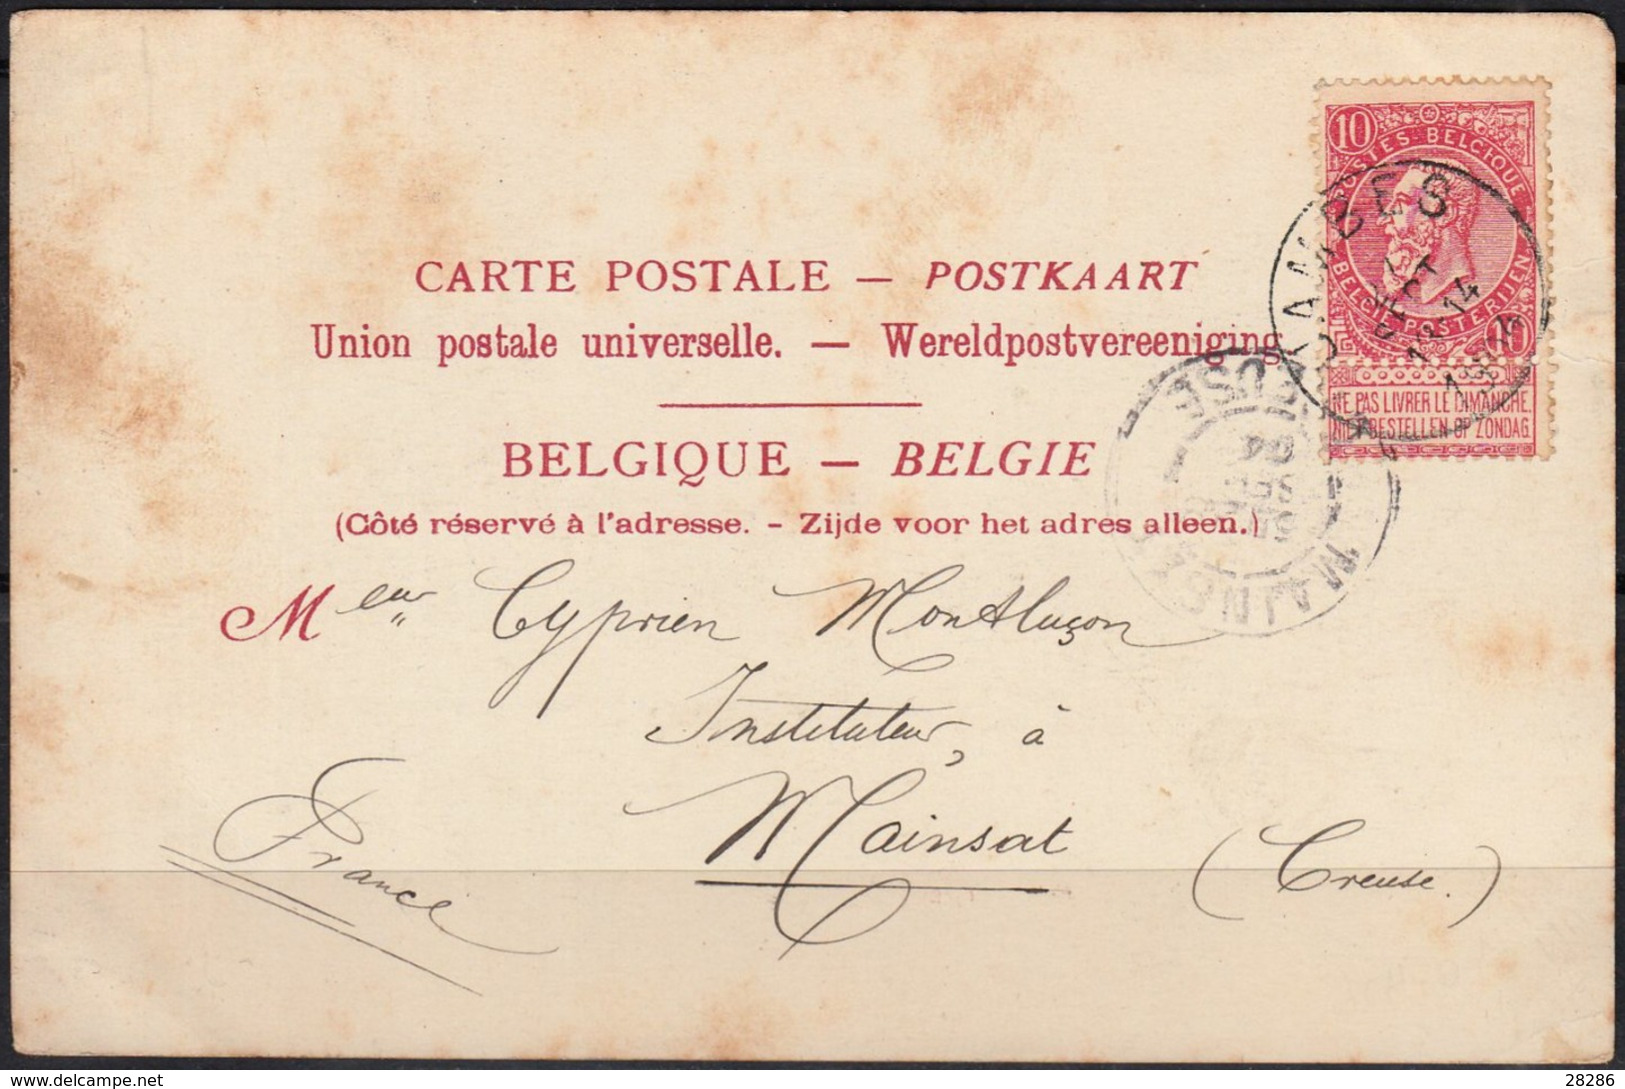 CARTE POSTALE — POSTKAART
Union postale universelle. — Wereldpostvereeniging
BELGIQUE — BELGIE
(Côté réservé à l'adresse. - Zijde voor het adres alleen.)
10
POSTES-BELGIQUE
BELGIË-POSTERIJEN
10
NE PAS LIVRER LE DIMANCHE.
NIET BESTELLEN OP ZONDAG
JAMBES
SEPT
14
MAINSAT
CREUSE
04
Meur Cyprien Montluçon
Instituteur, à
Mainsat (Creuse.)
France
delcampe.net
28286